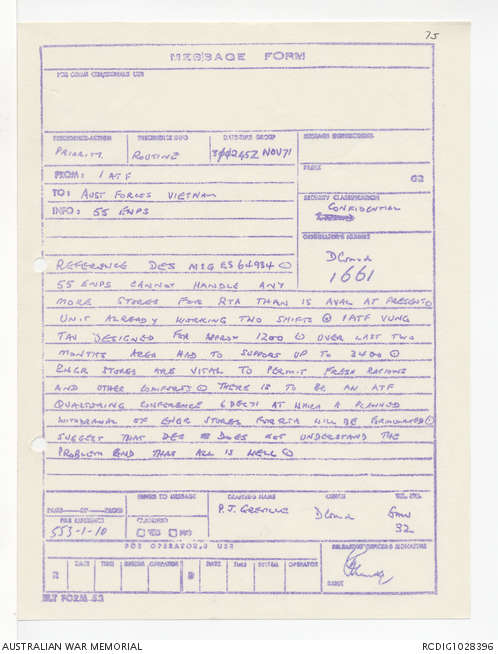 75
MESSAGE FORM
FOR COMM CEN/SIGNALS USE
PRECEDENCE-ACTION
PRECEDENCE-INFO
DATE-TIME GROUP
MESSAGE INSTRUCTIONS
PRIORITY
ROUTINE
300245Z NOV71
FROM: 1 ATF
PREFIX
G2
TO: AUST FORCES VIETNAM
SECURITY CLASSIFICATION
CONFIDENTIAL
INFO: 55 ENPS
ORIGINATOR'S NUMBER
DComd
1661
REFERENCE DES MSG ES 64934 ⊙
55 ENPS CANNOT HANDLE ANY
MORE STORES FOR RTA THAN IS AVAL AT PRESENT ⊙
UNIT ALREADY WORKING TWO SHIFTS ⊙ 1ATF VUNG
TAU DESIGNED FOR APPROX 1200 ⊙ OVER LAST TWO
MONTHS AREA HAD TO SUPPORT UP TO 3400 ⊙
ENGR STORES ARE VITAL TO PERMIT FRESH RATIONS
AND OTHER COMFORTS ⊙ THERE IS TO BE AN ATF
QUARTERING CONFERENCE 6 DEC 71 AT WHICH A PLANNED
WITHDRAWAL OF ENGR STORES FOR RTA WILL BE FORMULATED ⊙
SUGGEST THAT DES DOES NOT UNDERSTAND THE
PROBLEM AND THAT ALL IS WELL ⊙
PAGE OF PAGES
REFERS TO MESSAGE
DRAFTERS NAME
OFFICE
TEL NO.
P.J. GREVILLE
DComd
32
FILE REFERENCE
CLASSIFIED
553-1-10
YES NO
FOR OPERATOR'S USE
RELEASING OFFICERS SIGNATURE
R
DATE
TIME
SYSTEM
OPERATOR
D
DATE
TIME
SYSTEM
OPERATOR
RANK
MLT FORM 52
AUSTRALIAN WAR MEMORIAL
RCDIG1028396